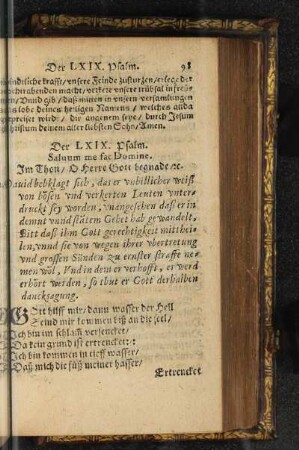 Der LXIX. Psalm. 98
kraffe/ unsere Feinde zusturzen/
rabenden macht/ verkere unsere trübsal in freü-
Vnnd gib/ daß mitten in unsern versamlungen
lobe deinen heiligen Namens/ welchen anda
gepreiset wird/ dir angenem seye/ durch Jesum
Christum deinem aller liebsten Sohn/ Amen.
Der LXIX. Psalm.
Saluum me fac Domine.
Im Thon/ O Herre Gott begnade ꝛc.
Dauid beklagt sich, daß er vnbillicher weiß
von bösen vnd verkerten Leuten vnter-
druckt sey worden, vnangesehen daß er in
demut vnnd stätem Gebet hab gewandelt,
Bitt daß ihm Gott gerechtigkeit mitthei-
len, vnnd sie von wegen ihrer vbertretung
vnd grossen Sünden zu ernster straffe ne-
men wöl, Vnd in dem er verhofft, er werd
erhört werden, so thut er Gott derhalben
dancksagung.
GOtt hilff mir/ dann wasser der Hell
Seind mir kommen biß an die seel/
Ich bin im schlam versencket/
Da kein grund ist ertrencket:
Ich bin kommen in tieff wasser/
Daß mich die
Ertrencket